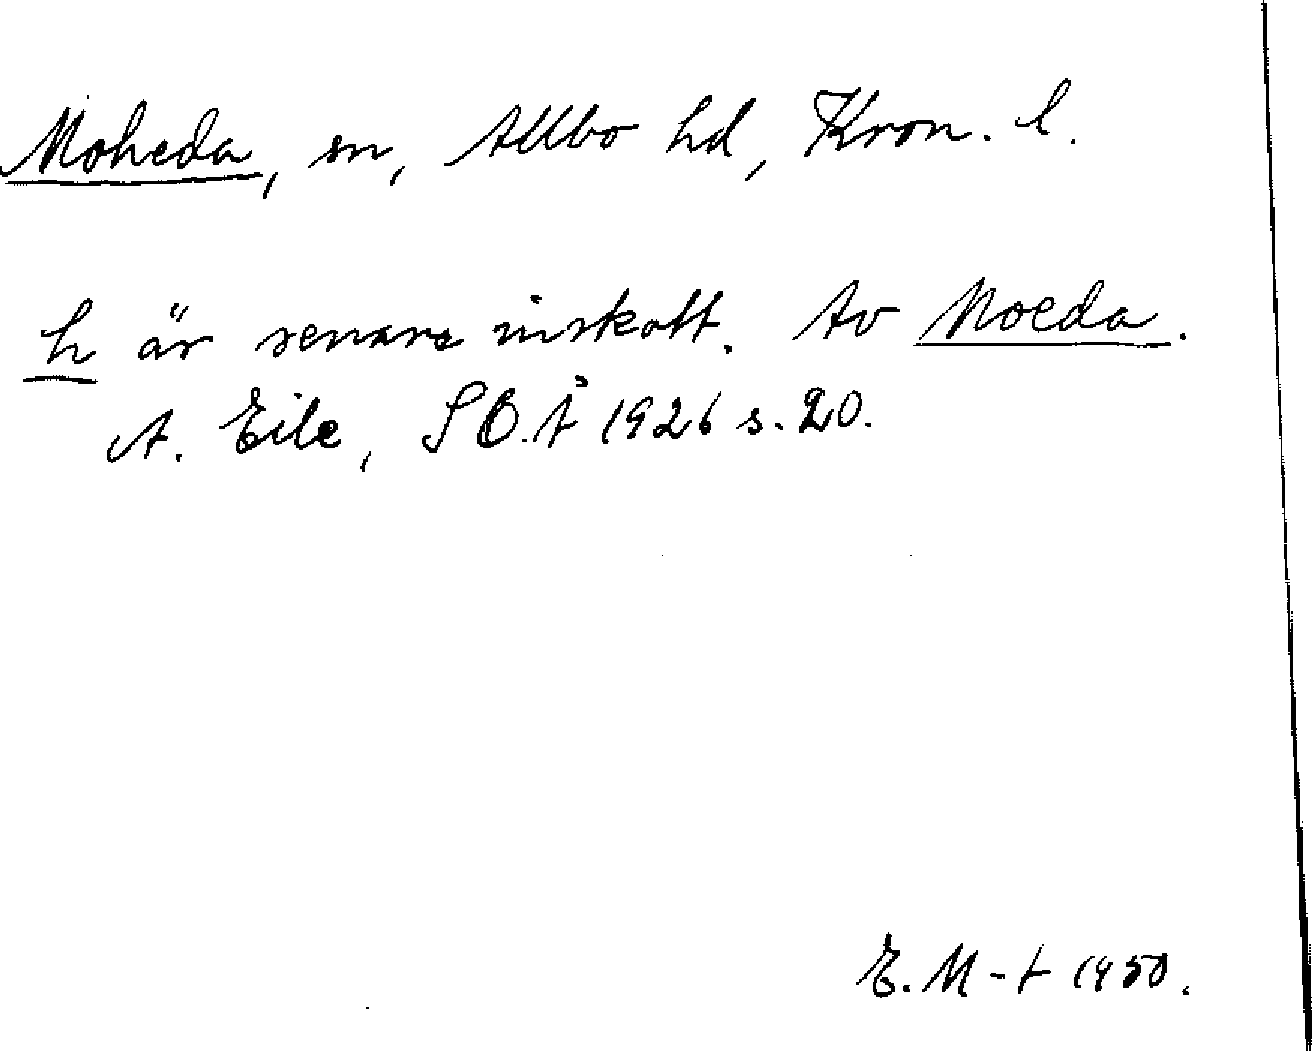 Moheda, sn, Allbo hd, Kron. l.
h är senare inskott. Av Moeda.
A. Eile, SOÅ 1926 s. 20.
E. M-t 1950.